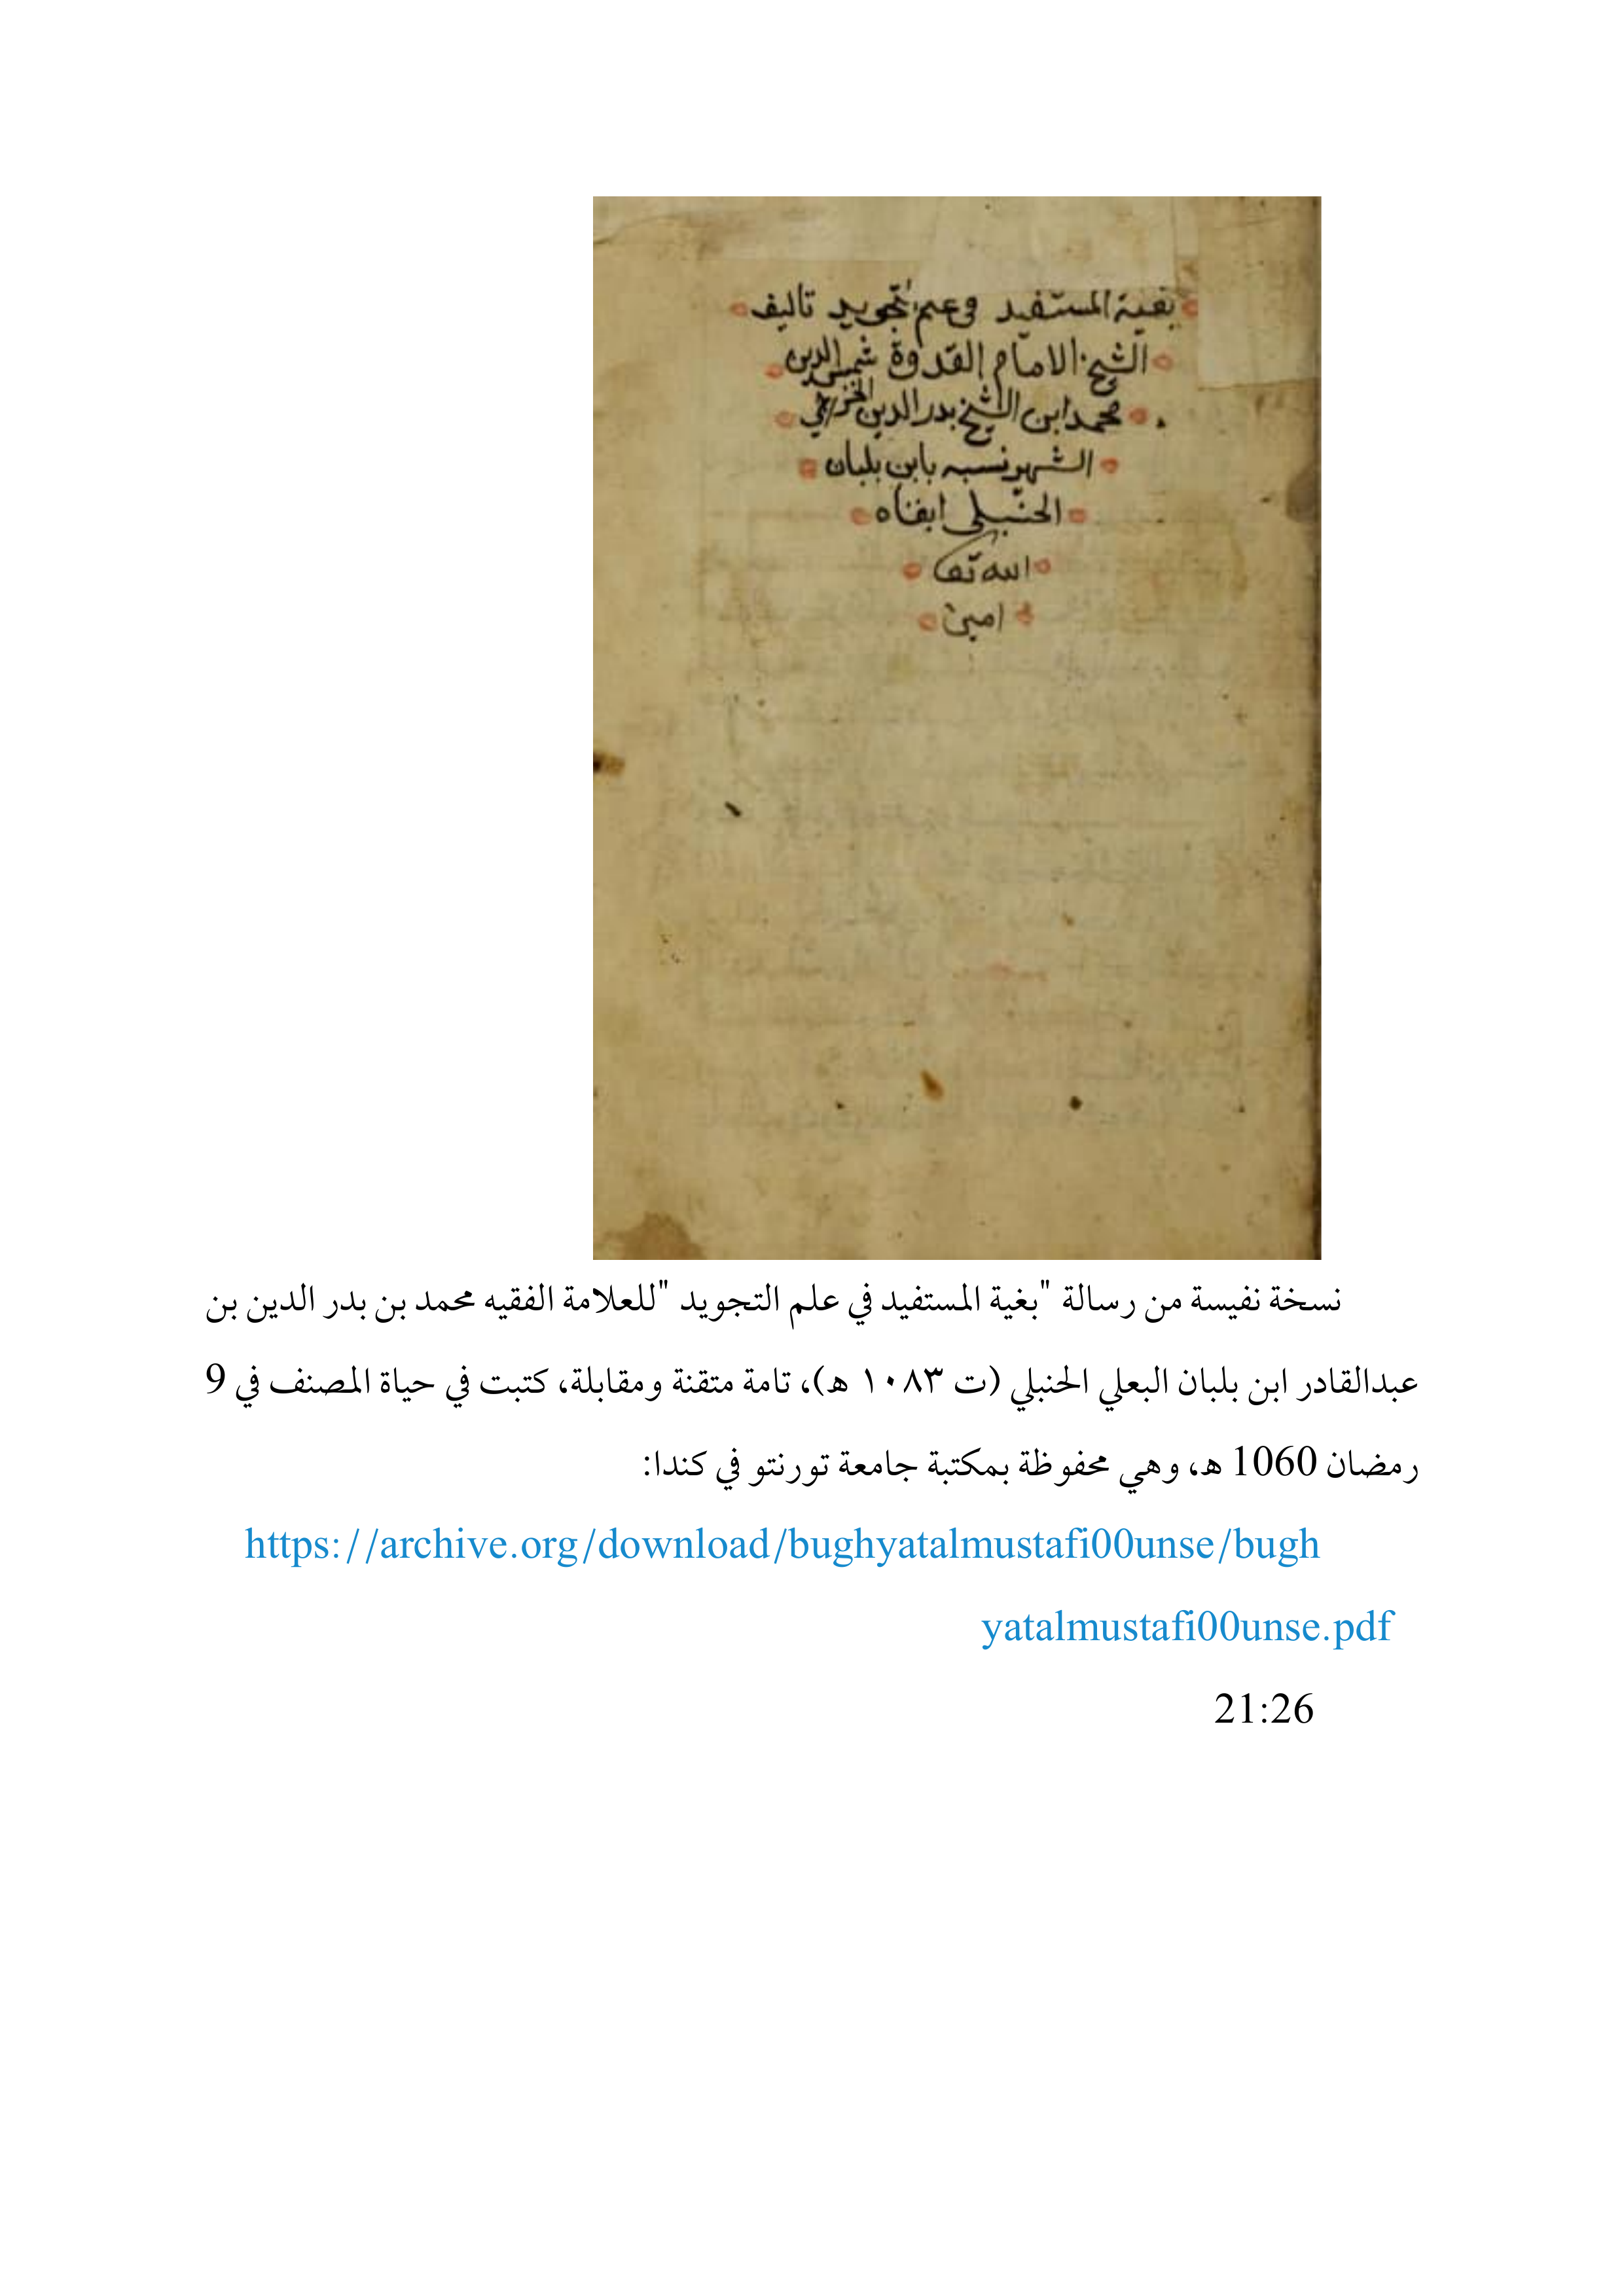 بغية المستفيد في علم التجويد تاليف
الشيخ الامام القدوة شمس الدين
محمد ابن الشيخ بدر الدين الخزرجي
الشهير نسبه بابن بلبان
الحنبلي ابقاه
الله تعا
امين
نسخة نفيسة من رسالة "بغية المستفيد في علم التجويد "للعلامة الفقيه محمد بن بدر الدين بن
عبدالقادر ابن بلبان البعلي الحنبلي (ت ١٠٨٣ هـ)، تامة متقنة ومقابلة، كتبت في حياة المصنف في 9
رمضان 1060 هـ، وهي محفوظة بمكتبة جامعة تورنتو في كندا:
https://archive.org/download/bughyatalmustafi00unse/bugh
yatalmustafi00unse.pdf
21:26